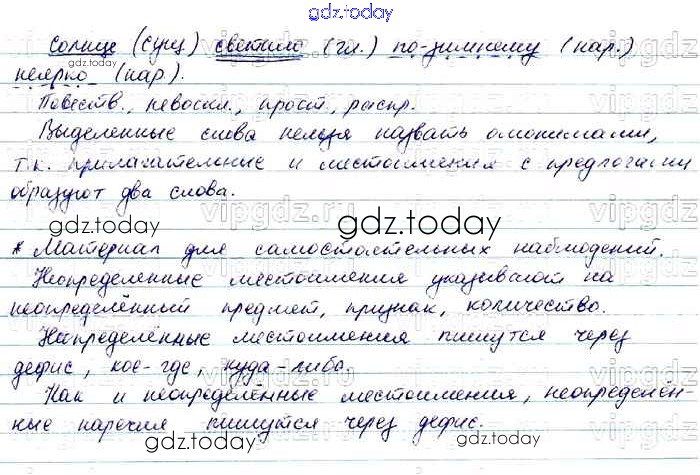 gdz.today
Солнце (сущ) светило (гл.) по-зимнему (нар.)
неярко (нар.).
Повеств., невоскл., прост., распр.
Выделенные слова нельзя назвать омонимами,
т.к. прилагательные и местоимения с предлогами
образуют два слова.
gdz.today
gdz.today
* Материал для самостоятельных наблюдений.
Неопределенные местоимения указывают на
неопределённый предмет, признак, количество.
Неопределённые местоимения пишутся через
дефис, кое-где, куда-либо.
Как и неопределённые местоимения, неопределён-
ные наречия пишутся через дефис.
gdz.today
gdz.today